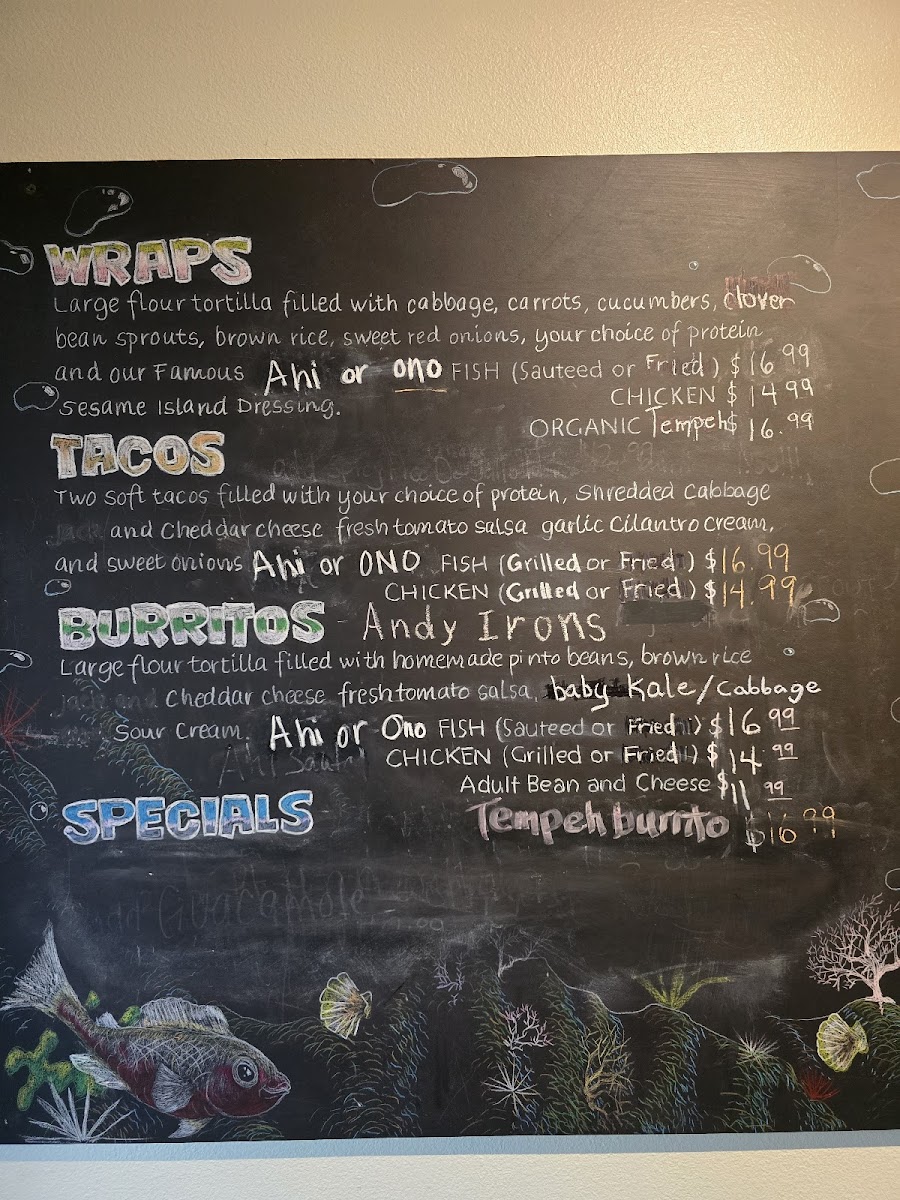 WRAPS
Large flour tortilla filled with cabbage, carrots, cucumbers, clover
bean sprouts, brown rice, sweet red onions, your choice of protein
and our Famous Ahi or ono FISH (Sauteed or Fried) $16.99
Sesame Island Dressing. CHICKEN $14.99
ORGANIC Tempeh $16.99
TACOS
Two soft tacos filled with your choice of protein, Shredded Cabbage
and Cheddar cheese fresh tomato salsa garlic Cilantro cream,
and sweet onions Ahi or ONO FISH (Grilled or Fried) $16.99
CHICKEN (Grilled or Fried) $14.99
BURRITOS - Andy Irons
Large flour tortilla filled with homemade pinto beans, brown rice
Cheddar cheese fresh tomato salsa, baby Kale/Cabbage
Sour Cream. Ahi or Ono FISH (Sauteed or Fried) $16.99
CHICKEN (Grilled or Fried) $14.99
Adult Bean and Cheese $11.99
SPECIALS Tempeh burrito $16.99
Guacamole